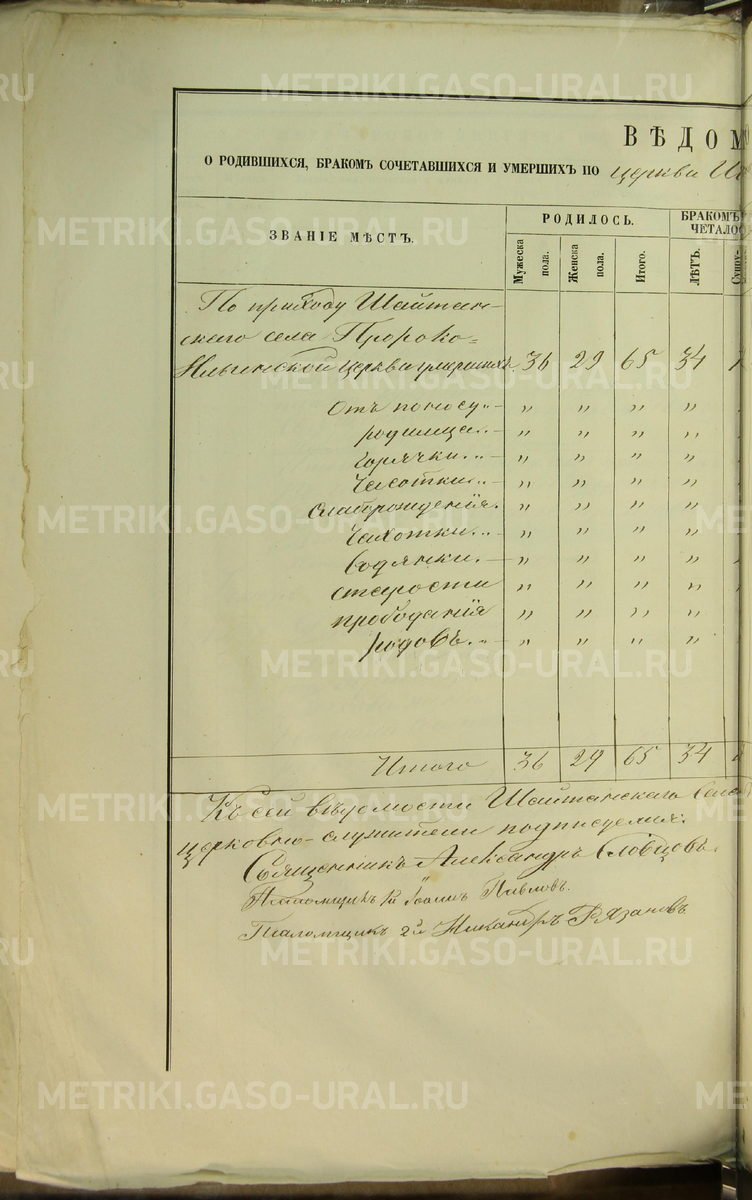 ВѢДОМ
О РОДИВШИХСЯ, БРАКОМЪ СОЧЕТАВШИХСЯ И УМЕРШИХЪ ПО церкви
ЗВАНІЕ МѢСТЪ.
РОДИЛОСЬ.
БРАКОМЪ
ЧЕТАЛО
Мужеска пола.
Женска пола.
Итого.
ЛѢТЪ.
По приходу Шайтан-
скаго села Пророко-
Ильинской церкви умершихъ 36 29 65 34
Отъ поносу „ „ „ „
родимца „ „ „ „
горячки „ „ „ „
Чесотки „ „ „ „
слаборожденія „ „ „ „
Чахотки „ „ „ „
Водянки „ „ „ „
старости „ „ „ „
прободанія „ „ „ „
родовъ „ „ „ „
Итого 36 29 65 34
Къ сей вѣдомости Шайтанскаго Села
церковно-служители подписуемся:
Священникъ Александръ Словцовъ.
Псаломщикъ 1й Іоаннъ Павловъ.
Псаломщикъ 2й Никандръ Рязановъ
METRIKI.GASO-URAL.RU